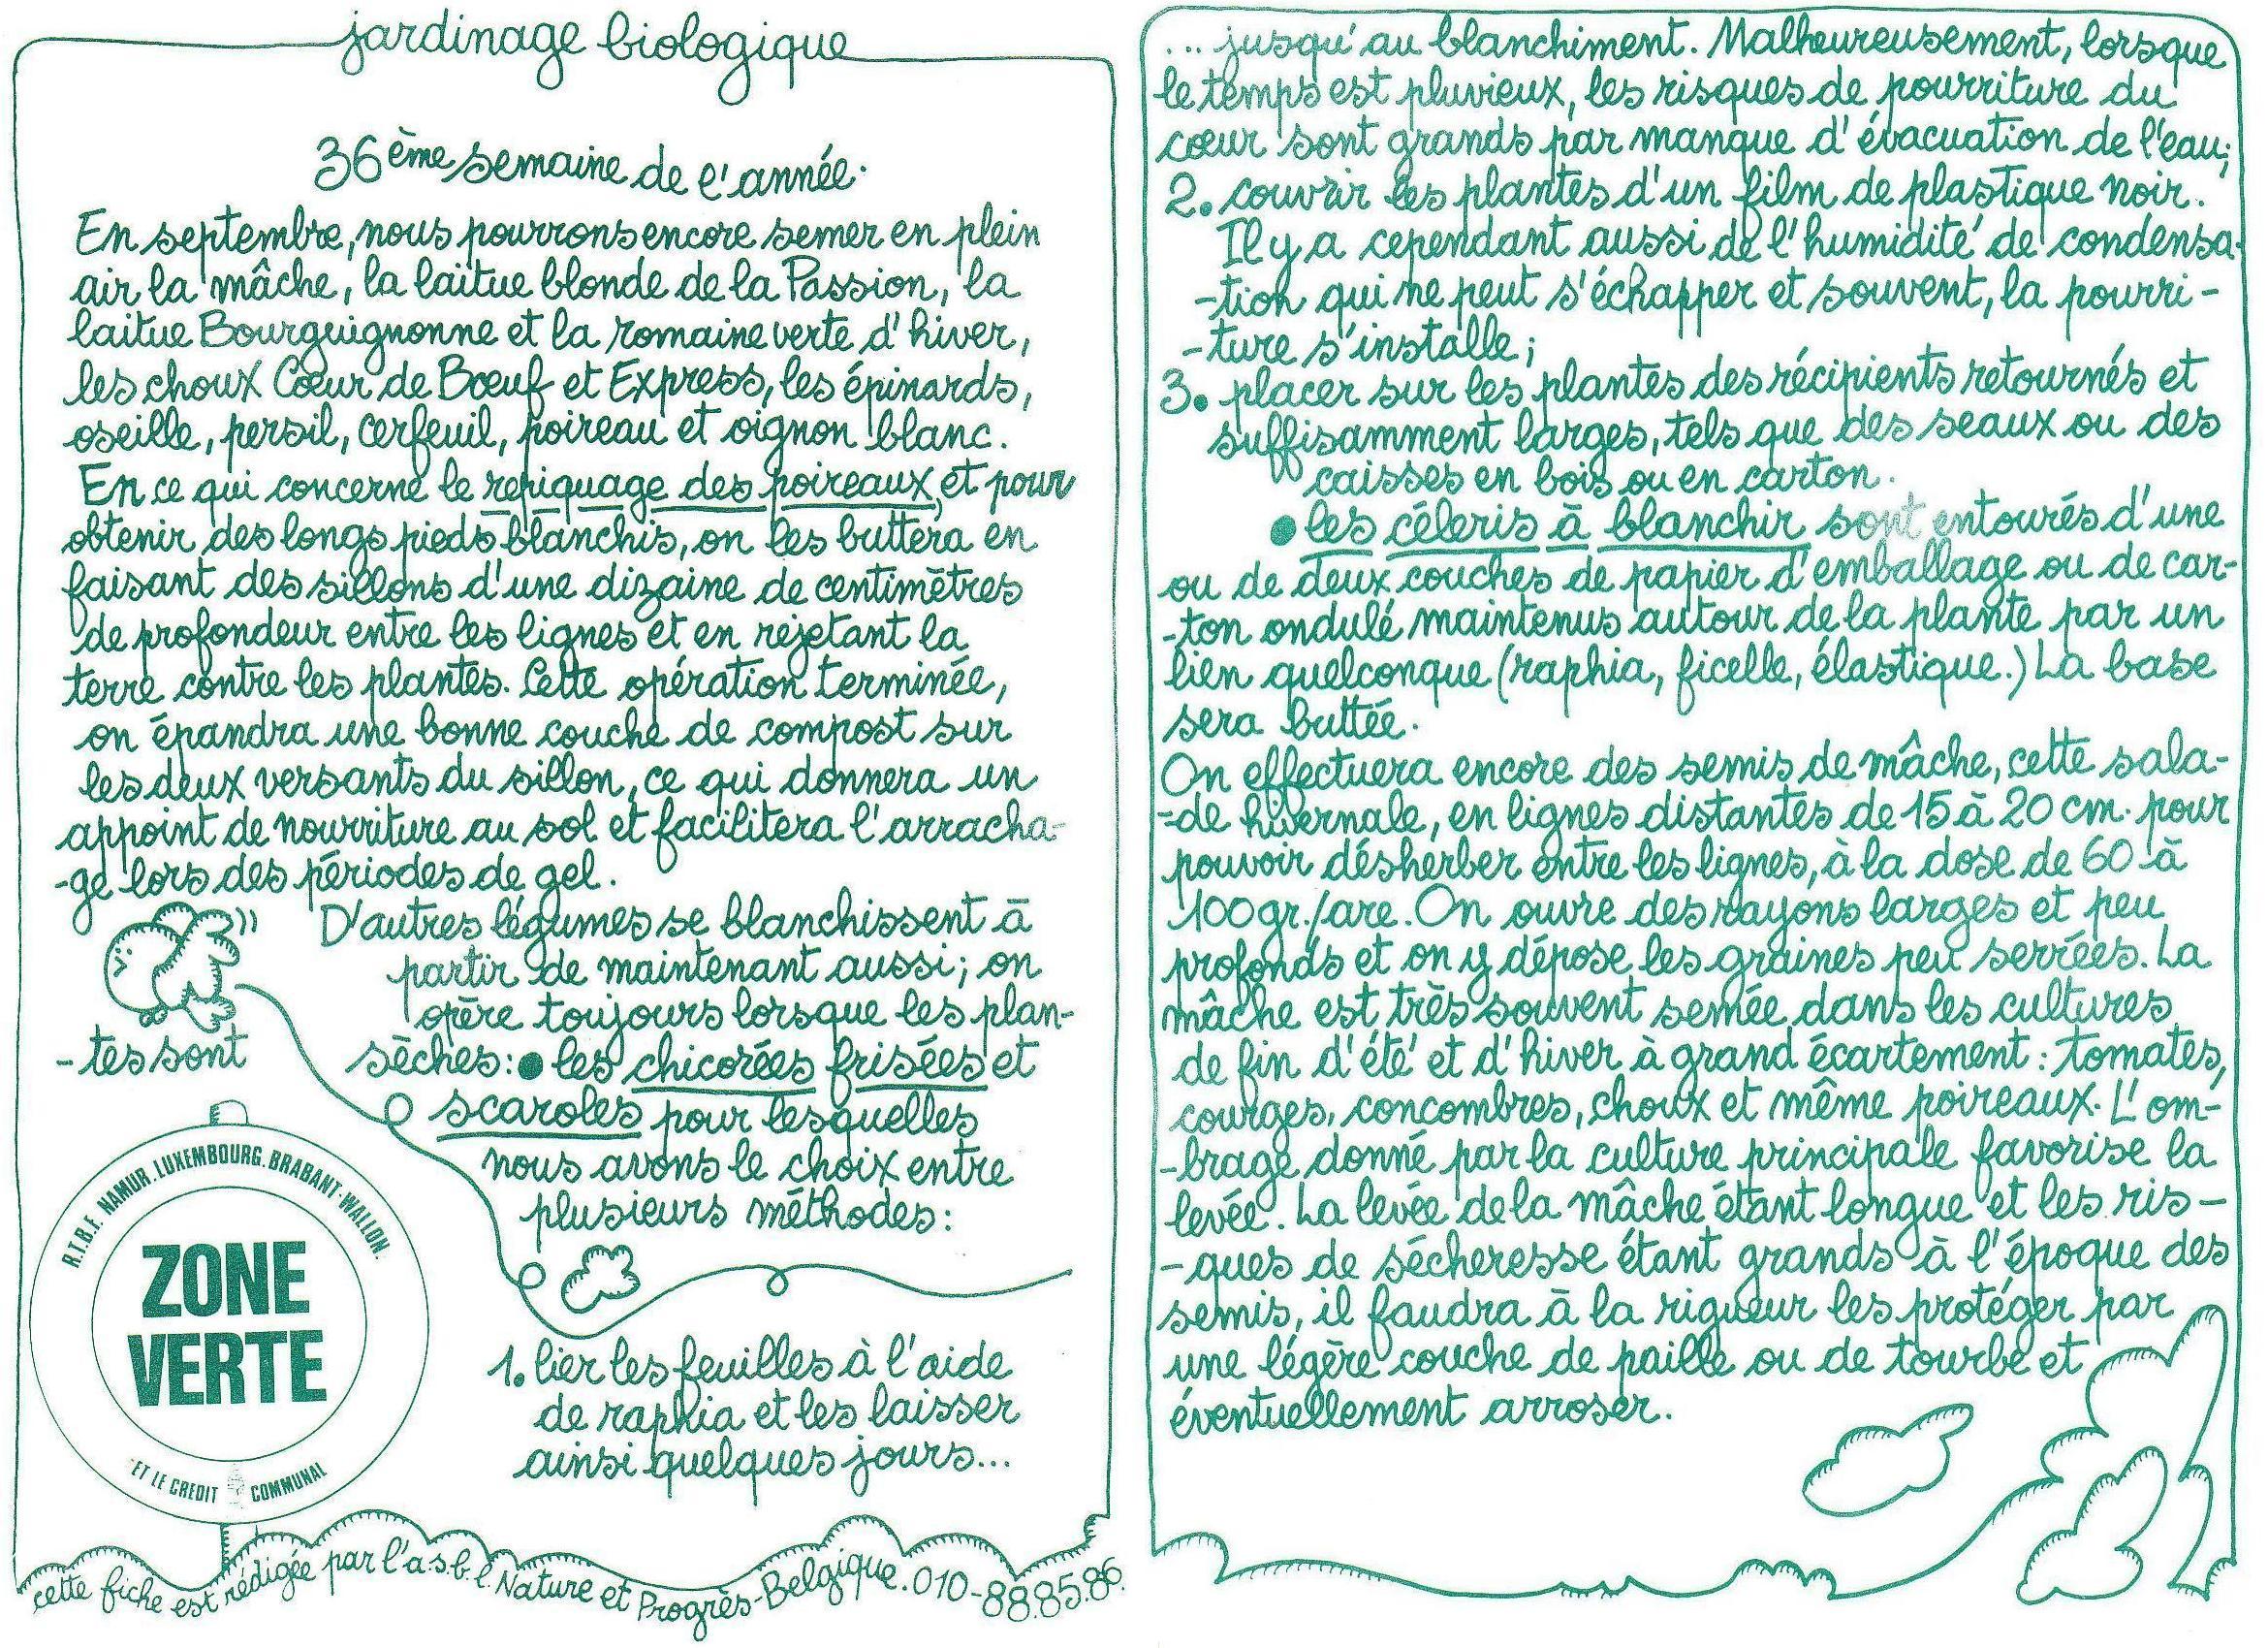 jardinage biologique
36ème semaine de l'année.
En septembre, nous pourrons encore semer en plein
air la mâche, la laitue blonde de la Passion, la
laitue Bourguignonne et la romaine verte d'hiver,
les choux Cœur de Bœuf et Express, les épinards,
oseille, persil, cerfeuil, poireau et oignon blanc.
En ce qui concerne le repiquage des poireaux, et pour
obtenir des longs pieds blanchis, on les buttera en
faisant des sillons d'une dizaine de centimètres
de profondeur entre les lignes et en rejetant la
terre contre les plantes. Cette opération terminée,
on épandra une bonne couche de compost sur
les deux versants du sillon, ce qui donnera un
appoint de nourriture au sol et facilitera l'arracha-
-ge lors des périodes de gel.
D'autres légumes se blanchissent à
partir de maintenant aussi; on
opère toujours lorsque les plan-
-tes sont sèches: ● les chicorées frisées et
scaroles pour lesquelles
nous avons le choix entre
plusieurs méthodes:
1. lier les feuilles à l'aide
de raphia et les laisser
ainsi quelques jours...
R.T.B.F. NAMUR. LUXEMBOURG. BRABANT-WALLON.
ZONE
VERTE
ET LE CREDIT COMMUNAL
cette fiche est rédigée par l'a.s.b.l. Nature et Progrès-Belgique. 010-88.85.86.
... jusqu'au blanchiment. Malheureusement, lorsque
le temps est pluvieux, les risques de pourriture du
cœur sont grands par manque d'évacuation de l'eau;
2. couvrir les plantes d'un film de plastique noir.
Il y a cependant aussi de l'humidité de condensa-
-tion qui ne peut s'échapper et souvent, la pourri-
-ture s'installe;
3. placer sur les plantes des récipients retournés et
suffisamment larges, tels que des seaux ou des
caisses en bois ou en carton.
● les céleris à blanchir sont entourés d'une
ou de deux couches de papier d'emballage ou de car-
-ton ondulé maintenus autour de la plante par un
lien quelconque (raphia, ficelle, élastique.) La base
sera buttée.
On effectuera encore des semis de mâche, cette sala-
-de hivernale, en lignes distantes de 15 à 20 cm. pour
pouvoir désherber entre les lignes, à la dose de 60 à
100 gr./are. On ouvre des rayons larges et peu
profonds et on y dépose les graines peu serrées. La
mâche est très souvent semée dans les cultures
de fin d'été et d'hiver à grand écartement: tomates,
courges, concombres, choux et même poireaux. L'om-
-brage donné par la culture principale favorise la
levée. La levée de la mâche étant longue et les ris-
-ques de sécheresse étant grands à l'époque des
semis, il faudra à la rigueur les protéger par
une légère couche de paille ou de tourbe et
éventuellement arroser.